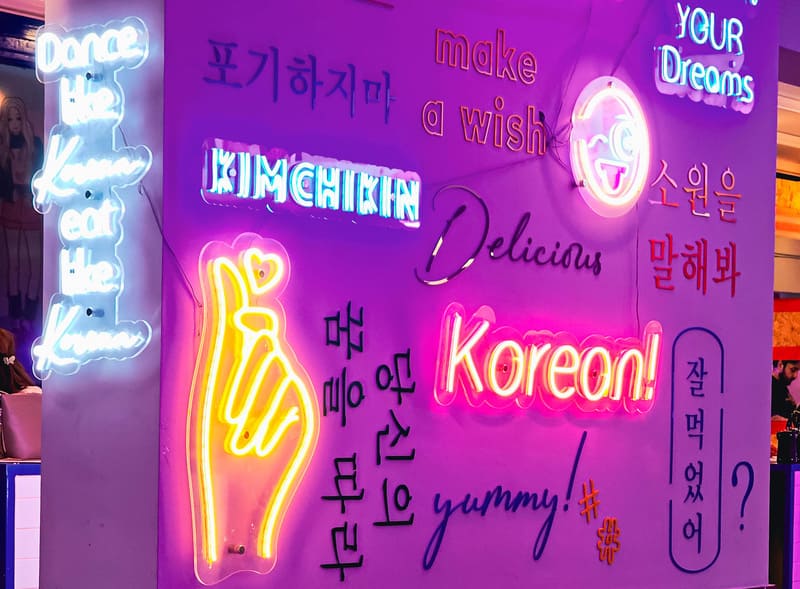 Dance
like
Korean
eat
like
Korean
포기하지마
make
a wish
YOUR
Dreams
KIMCHIKIN
Delicious
소원을
말해봐
Korean!
당신의
꿈을 따라
yummy!
##
잘먹었어?